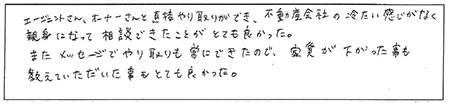 エージェントさん、オーナーさんと直接やり取りができ、不動産会社の冷たい感じがなく
親身になって相談できたことがとても良かった。
またメッセージでやり取りも常にできたので、家賃が下がった事も
教えていただいた事もとても良かった。